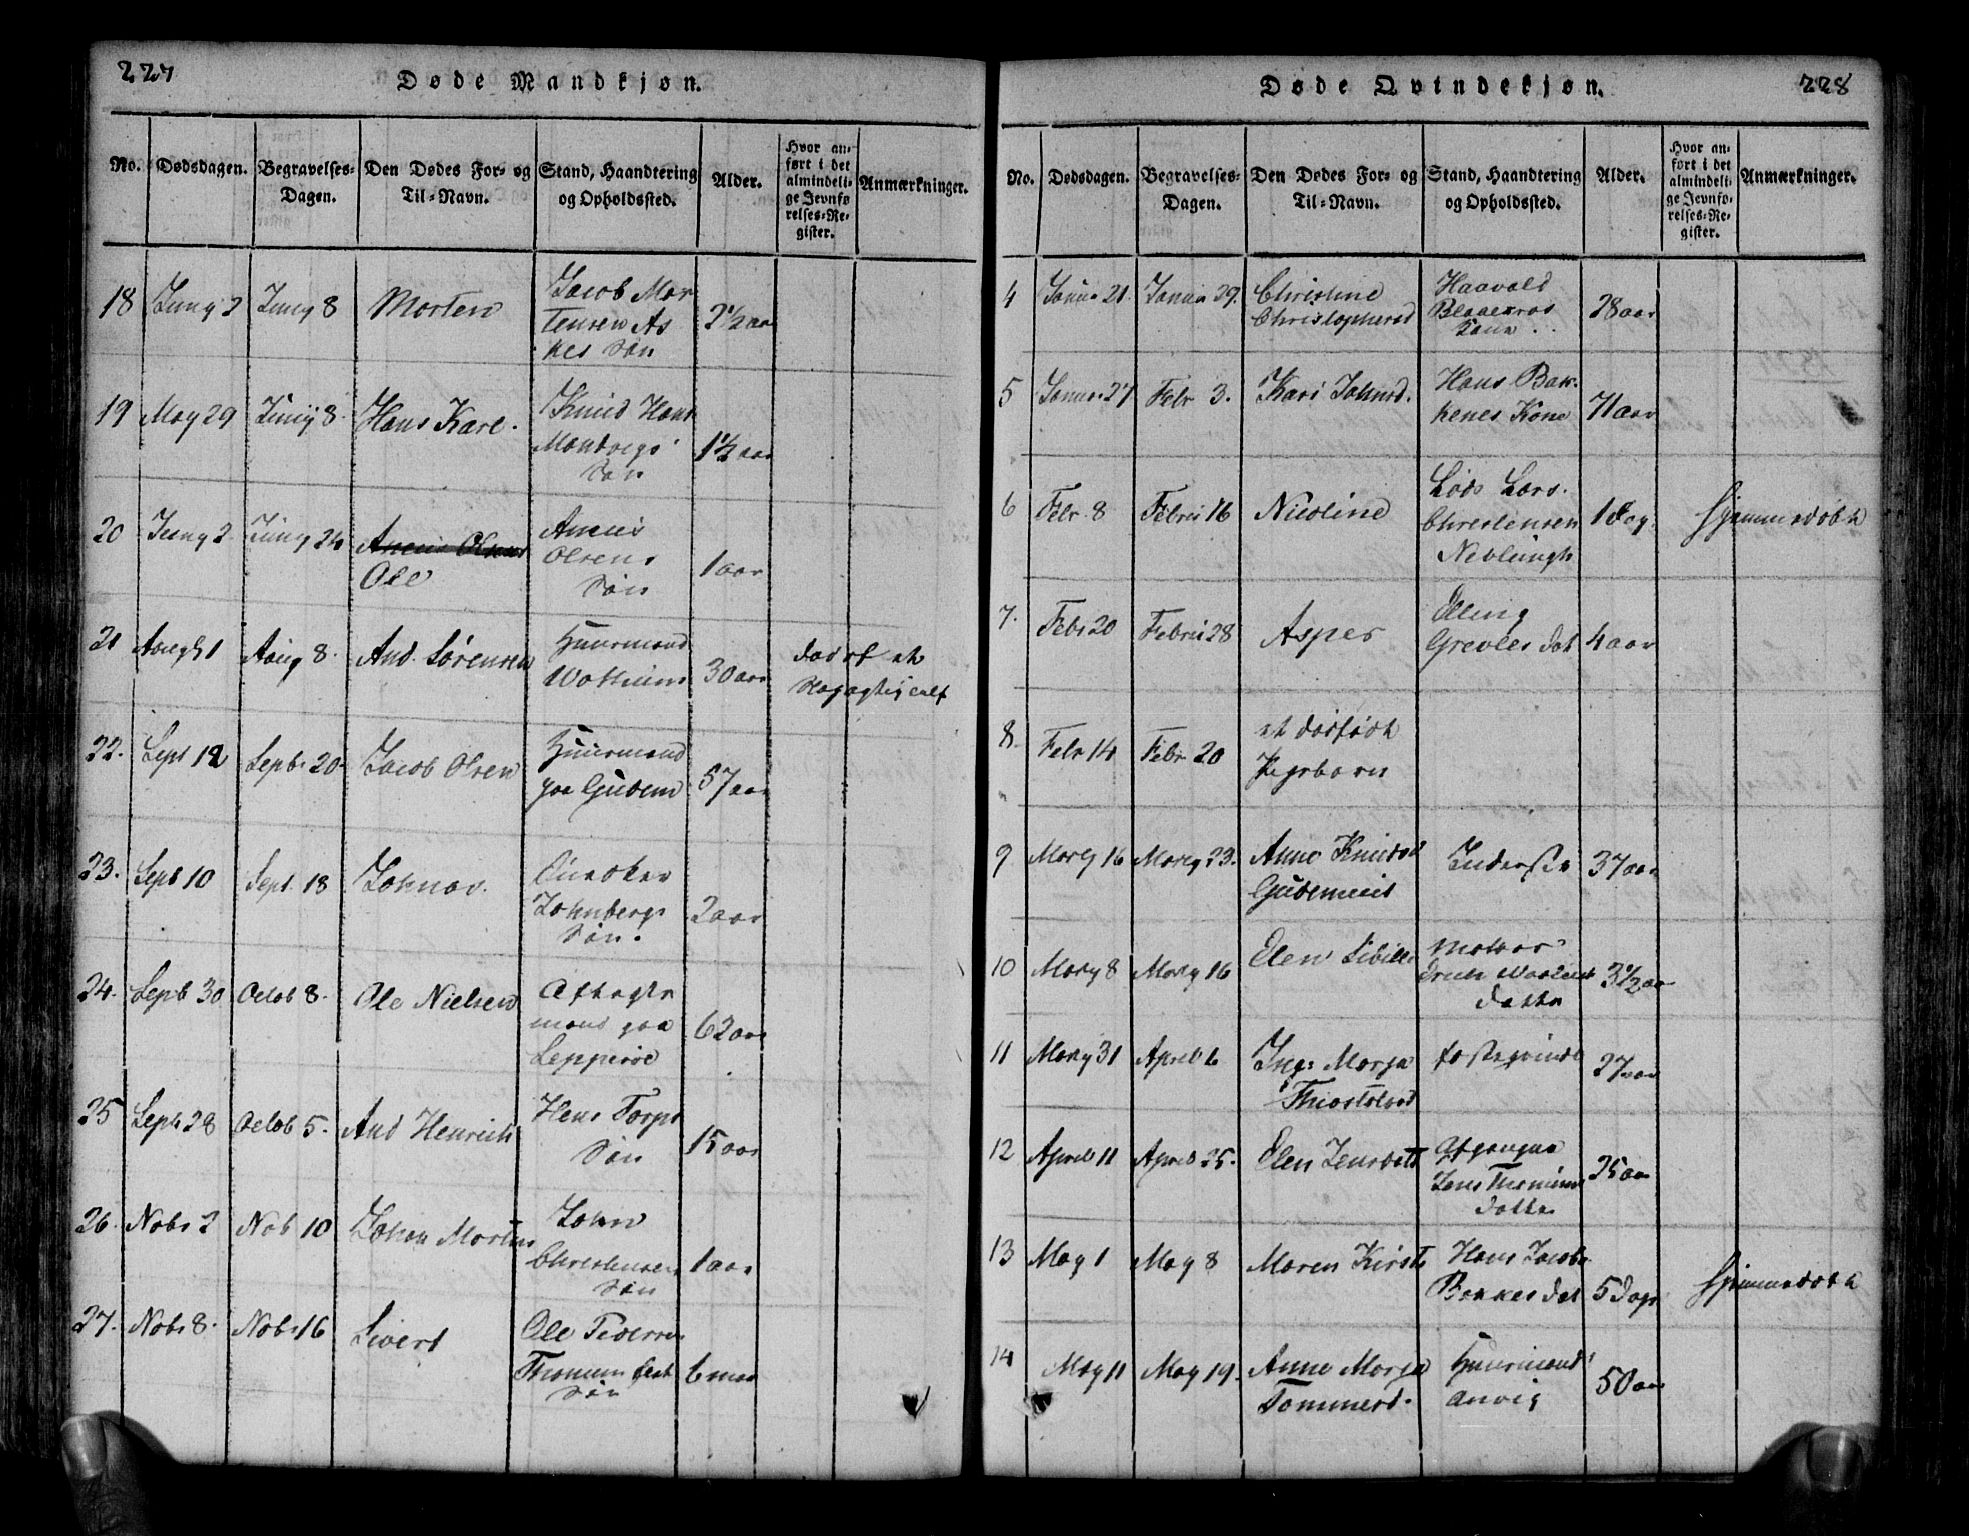 227
Døde Mandkjøn.
No. Dødsdagen. Begravelses-Dagen. Den Dødes For- og Til-Navn. Stand, Haandtering og Opholdssted. Alder. Hvor anført i det almindelige Jevnførelses-Register. Anmærkninger.
18 Juny 2 Juny 8 Morten Jacob Mor
tensen As
kes Søn 2½ aar
19 May 29 Juny 8. Hans Karl. Knud Hans
Søn 1½ aar
20 Juny 2 Juny 24 Ole
Olsens
Søn 1 aar
21 Aug 1 Aug 8. And. Sørensen Huusmand
30 aar
22. Sept 12 Septb 20. Jacob Olsen Huusmand
paa Gudem 57 aar
23. Septb 10 Sept. 18 Johnas.
Johnbergs
Søn. 2 aar
24. Septb 30 Octob 8. Ole Nielsen
mand paa
62 aar
25 Septb 28 Octob 5. And Henrich Hans Torps
Søn 15 aar
26. Nobr 2 Nob 10 Johan Morten John
Christensens
Søn 1 aar
27. Nobr 8. Nobr 16 Sivert Ole Pedersen
Søn 6 maa
228
Døde Qvindekjøn.
No. Dødsdagen. Begravelses-Dagen. Den Dødes For- og Til-Navn. Stand, Haandtering og Opholdssted. Alder. Hvor anført i det almindelige Jevnførelses-Register. Anmærkninger.
4 Janua 21. Janua 29. Christine
Christophersd Haavald
Kone 28 aar
5 Janua 27 Febr 3. Kari Johnsd. Hans Bak
kenes Kone 71 aar
6 Febr 8 Februi 16 Nicoline Lars
Christensen
Nevlungh 1 dag. Hjemmedøbt
7. Febr 20 Februi 28 Asper Elling
Grevles dat 4 aar
8. Febr 14 Febr 20 et dødfødt
Pigebarn
9 Marty 16 Marty 23. Anne Knudsd
Inderste 37 aar
10 Marty 8 Marty 16 Elen Sibille
datter 3½ aar
11 Marty 31 April 6 Inge Marja
27 aar
12 April 11 April 25. Elen Jensdatt
Jens
datter 25 aar
13 May 1 May 8 Maren Kirst Hans Jacob
Bakkes dat 5 dage Hjemmedøbt
14 May 11 May 19. Anne Marja
Tommesd. Huusmand
50 aar